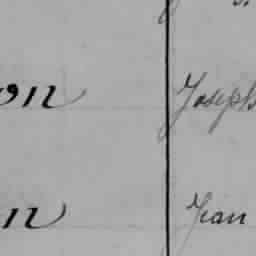 on Joseph
n Jean